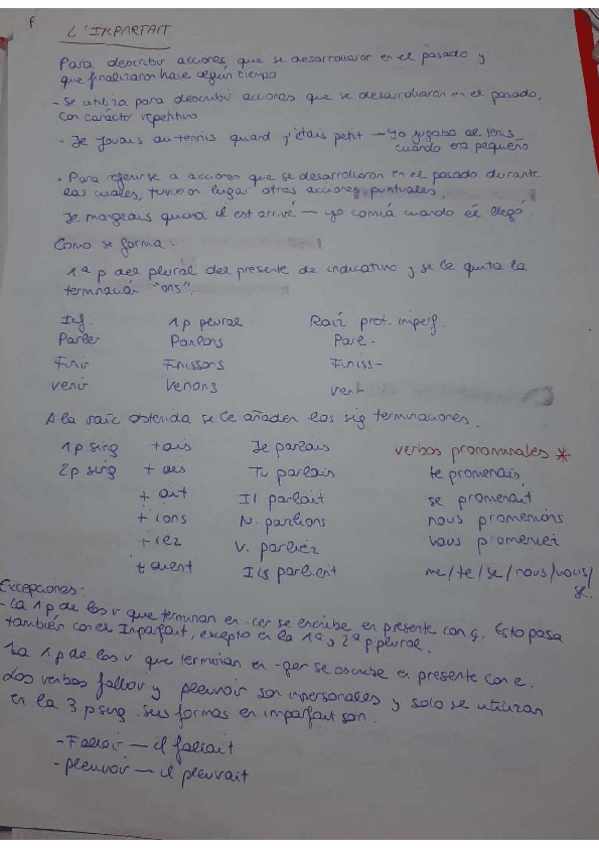 L'IMPARFAIT
Para describir acciones que se desarrollaron en el pasado y
que finalizaron hace algún tiempo
- Se utiliza para describir acciones que se desarrollaron en el pasado,
con carácter repetitivo
- Je jouais au tennis quand j'étais petit — Yo jugaba al tenis
cuando era pequeño
• Para referirse a acciones que se desarrollaron en el pasado durante
las cuales, tuvieron lugar otras acciones puntuales.
Je mangeais quand il est arrivé — yo comía cuando él llegó.
Como se forma:
1ª p del plural del presente de indicativo y se le quita la
terminación "ons".
Inf. 1p plural Raíz pret. imperf.
Parler Parlons Parl-
Finir Finissons Finiss-
venir Venons ven-
A la raíz obtenida se le añaden las sig terminaciones.
1p sing +ais Je parlais verbos pronominales *
2p sing +ais Tu parlais te promenais
+ait Il parlait se promenait
+ions N. parlions nous promenions
+iez V. parliez vous promeniez
+aient Ils parlient me/te/se/nous/vous/
se.
Excepciones:
- La 1p de los v que terminan en -cer se escribe en presente con ç. Esto pasa
también con el Imparfait, excepto en la 1ª y 2ª p plural.
La 1p de los v que terminan en -ger se escribe en presente con e.
Los verbos falloir y pleuvoir son impersonales y solo se utilizan
en la 3 p sing. Sus formas en imparfait son:
- Falloir — il fallait
- pleuvoir — il pleuvait